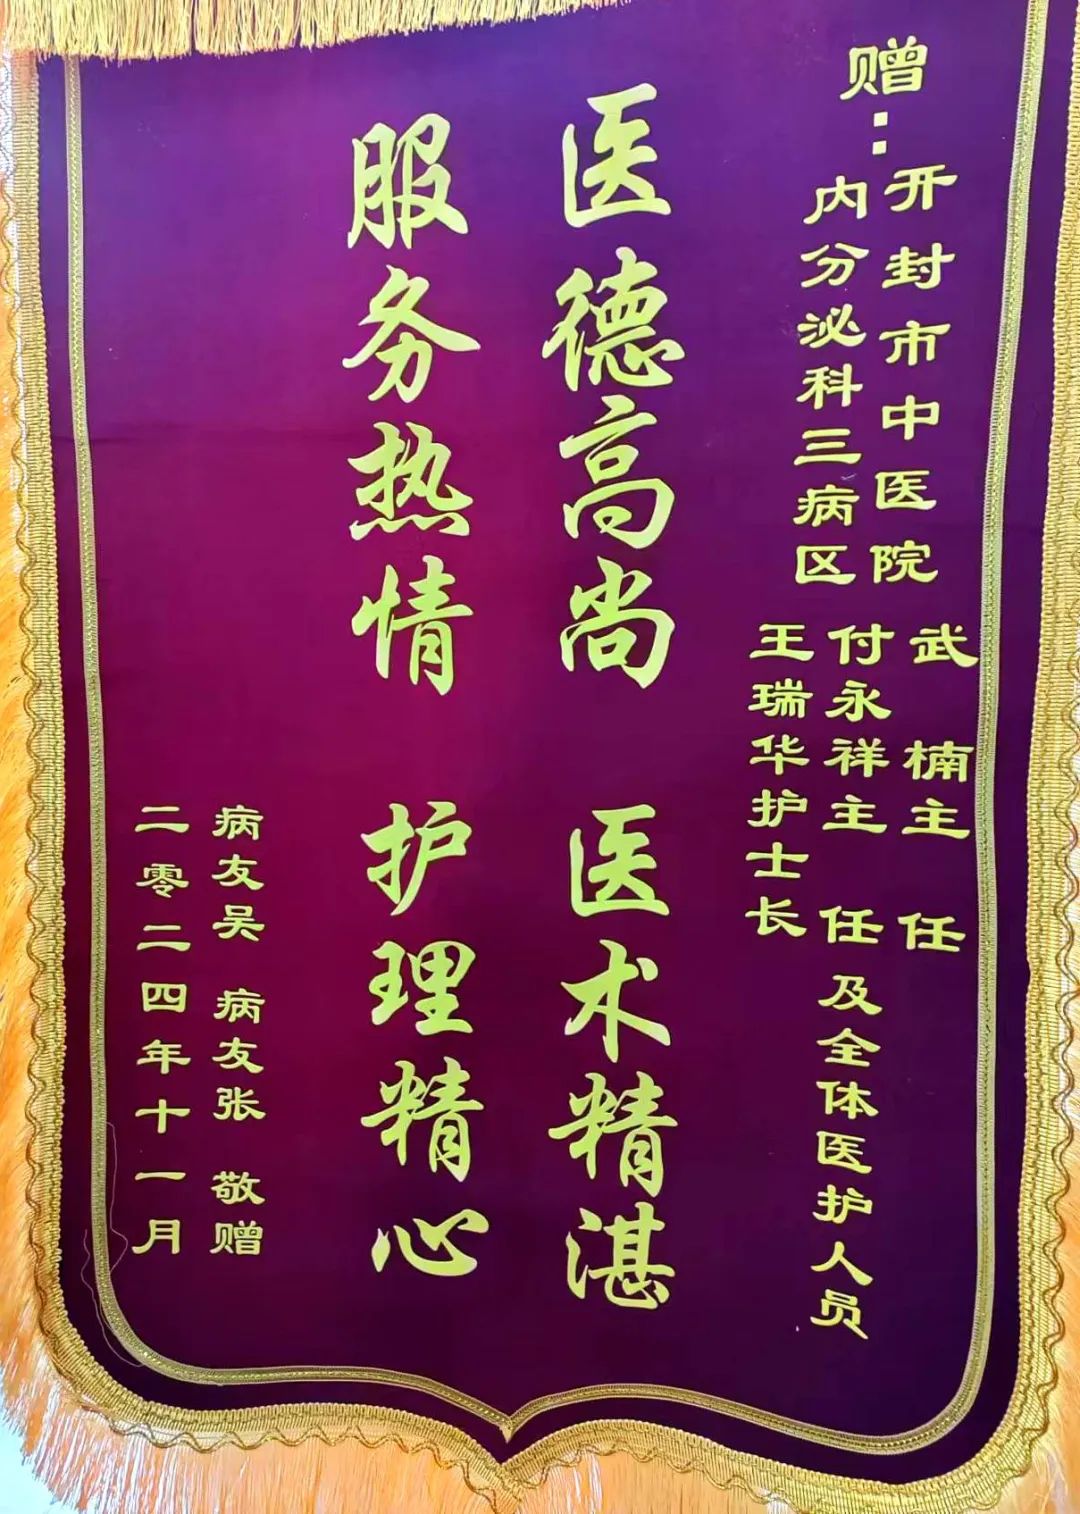 赠：
开封市中医院
内分泌科三病区
武楠主任
付永祥主任及全体医护人员
王瑞华护士长
医德高尚 医术精湛
服务热情 护理精心
病友吴 病友张 敬赠
二零二四年十一月